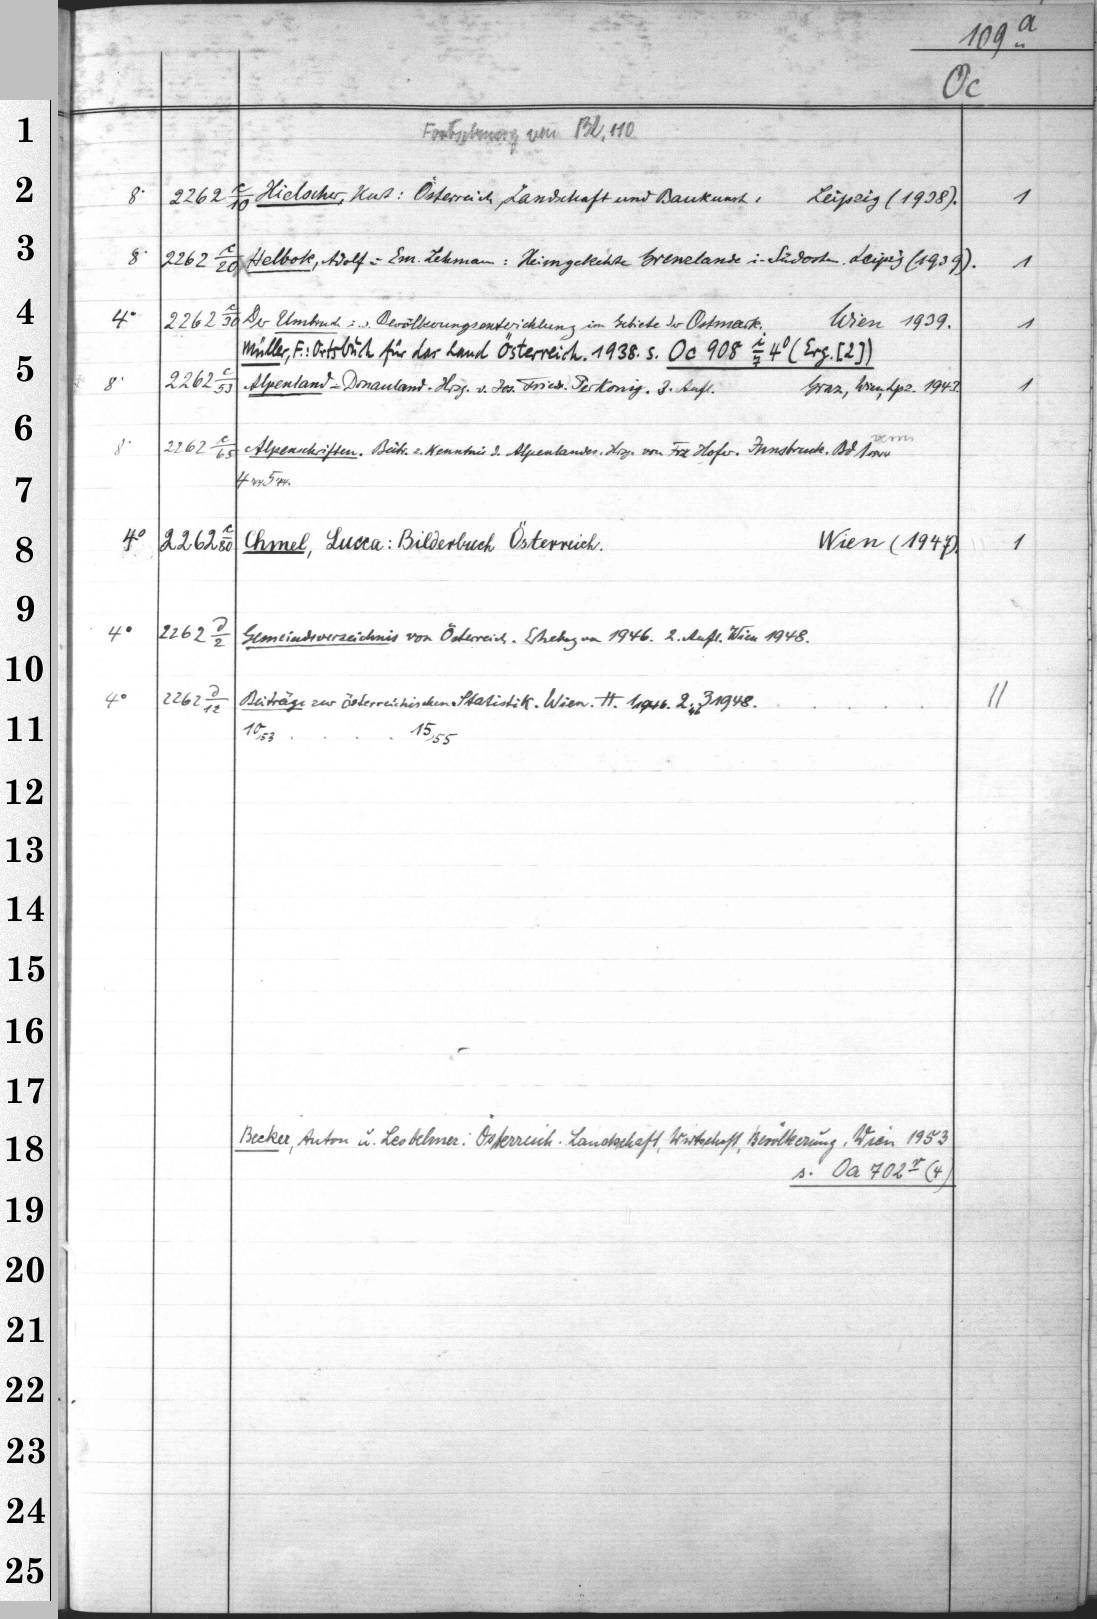 109 a
Oc
1
Fortsetzung von Bl. 110
2
8° 2262 c/10 Hielscher, Kurt: Österreich, Landschaft und Baukunst. Leipzig (1938). 1
3
8° 2262 c/20 Helbok, Adolf - Em. Lehmann: Heimgekehrte Grenzlande i. Südosten. Leipzig (1939). 1
4
4° 2262 c/30 Der Umbruch i. d. Bevölkerungsentwicklung im Gebiete der Ostmark. Wien 1939. 1
Müller, F.: Ortsbuch für das Land Österreich. 1938. s. Oc 908 i/7 4° (Erg. [2])
5
8° 2262 c/53 Alpenland - Donauland. Hrzg. v. Jos. Fried. Perkonig. 3. Aufl. Graz, Wien, Lpz. 1943. 1
6
8° 2262 c/65 Alpenschriften. Beitr. z. Kenntnis d. Alpenlandes. Hrzg. von Frz Hofer. Innsbruck. Bd 1
7
4 5
8
4° 2262 c/80 Chmel, Lucca: Bilderbuch Österreich. Wien (1947). 1
9
4° 2262 d/2 Gemeindeverzeichnis von Österreich. Erhebung von 1946. 2. Aufl. Wien 1948.
10
4° 2262 d/12 Beiträge zur österreichischen Statistik. Wien. H. 1 1946. 2 46 3 1948. . . . . . 11
11
10/53 . . . . 15/55
12
13
14
15
16
17
18
Becker, Anton u. : Österreich. Landschaft, Wirtschaft, Bevölkerung. Wien 1953
s. Oa 702 r (4)
19
20
21
22
23
24
25